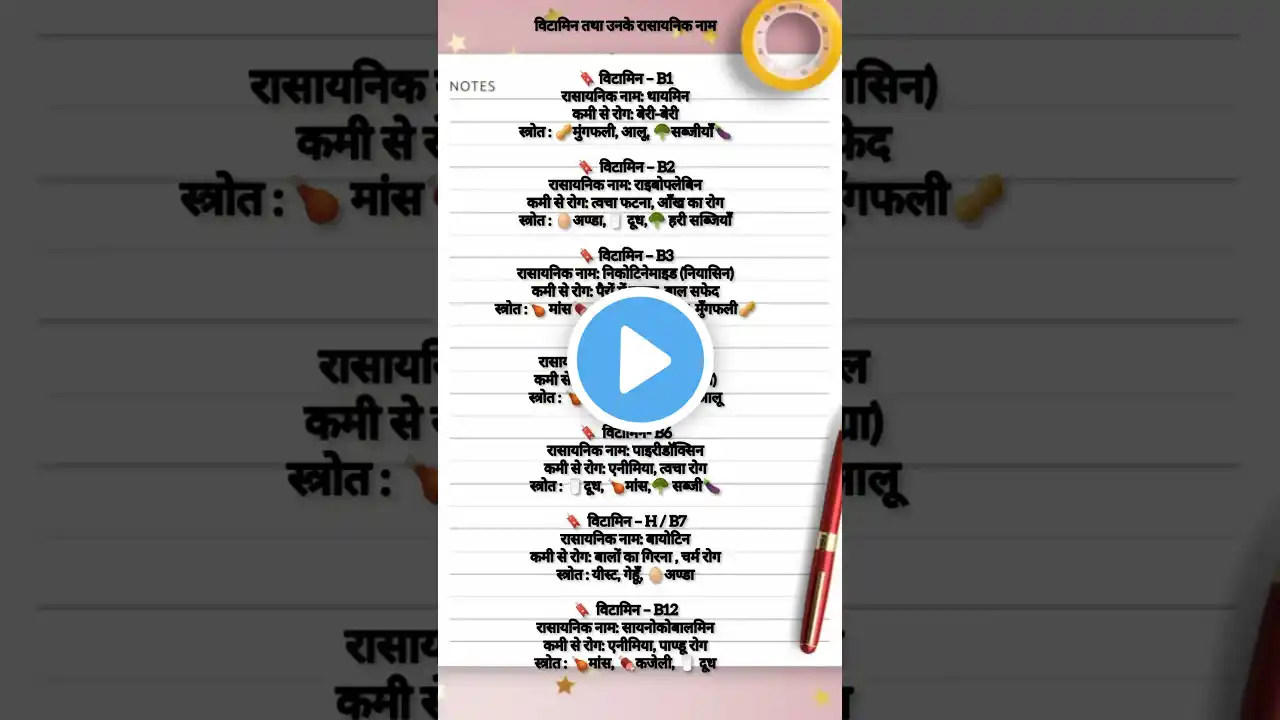 विटामिन तथा उनके रासायनिक नाम
NOTES
विटामिन – B1
रासायनिक नाम: थायमिन
कमी से रोग: बेरी-बेरी
स्त्रोत : मुंगफली, आलू, सब्जीयाँ
विटामिन – B2
रासायनिक नाम: राइबोफ्लेबिन
कमी से रोग: त्वचा फटना, आँख का रोग
स्त्रोत : अण्डा, दूध, हरी सब्जियाँ
विटामिन – B3
रासायनिक नाम: निकोटिनेमाइड (नियासिन)
कमी से रोग: पैरों में बाल सफेद
स्त्रोत : मांस मुँगफली
कमी से
स्त्रोत : आलू
विटामिन- B6
रासायनिक नाम: पाइरीडॉक्सिन
कमी से रोग: एनीमिया, त्वचा रोग
स्त्रोत : दूध, मांस, सब्जी
विटामिन – H / B7
रासायनिक नाम: बायोटिन
कमी से रोग: बालों का गिरना , चर्म रोग
स्त्रोत : यीस्ट, गेहूँ, अण्डा
विटामिन – B12
रासायनिक नाम: सायनोकोबालमिन
कमी से रोग: एनीमिया, पाण्डू रोग
स्त्रोत : मांस, कजेली, दूध